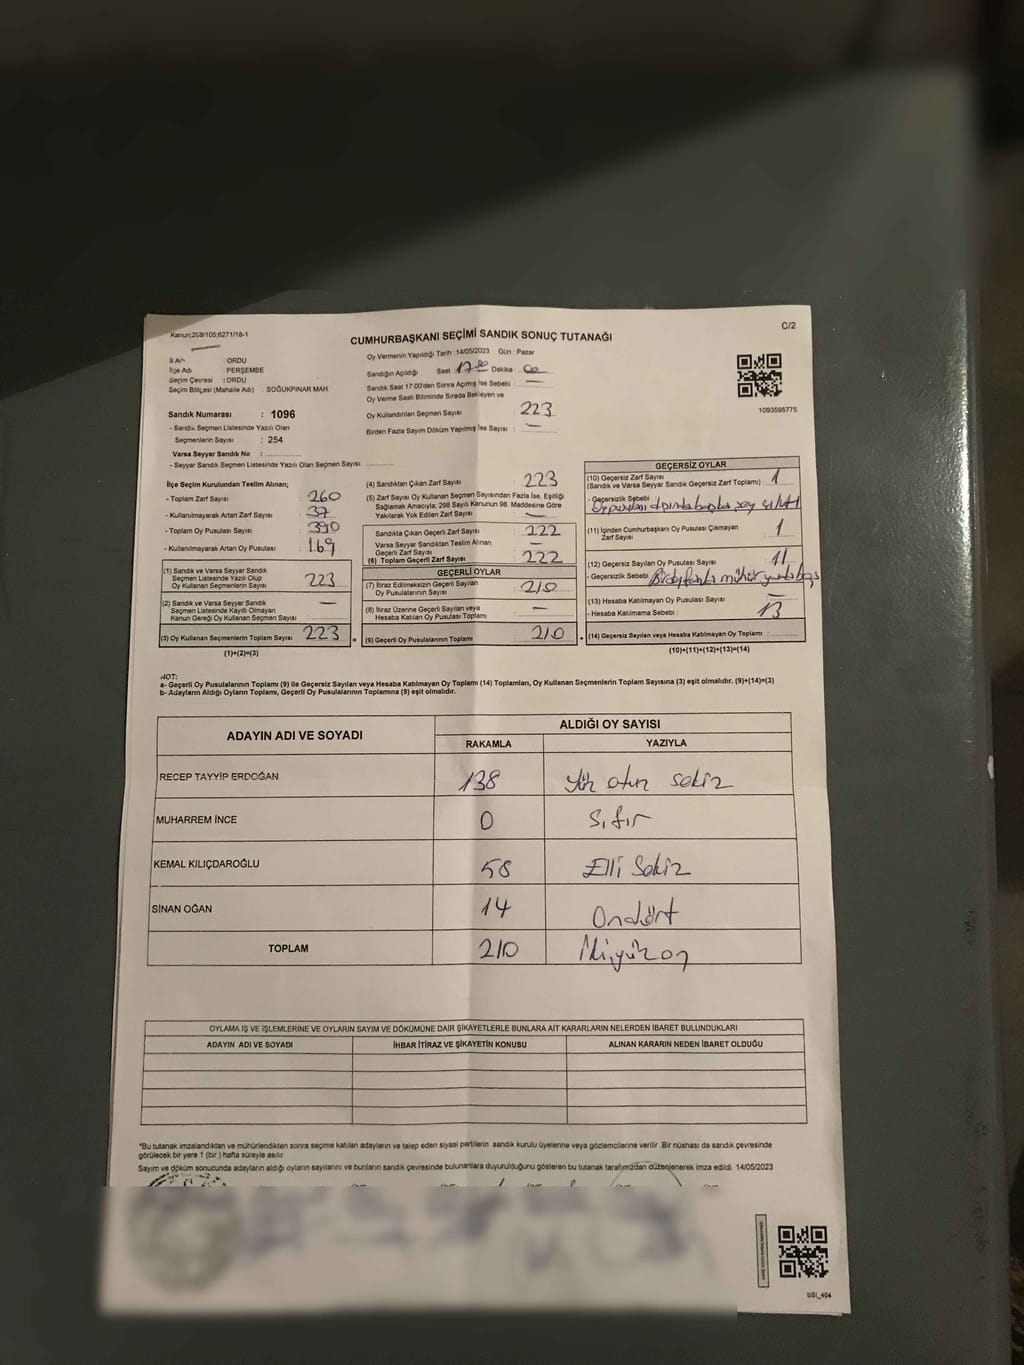 Kanun;298/105;6271/18-1
C/2
CUMHURBAŞKANI SEÇİMİ SANDIK SONUÇ TUTANAĞI
İl Adı : ORDU
İlçe Adı : PERŞEMBE
Seçim Çevresi : ORDU
Seçim Bölgesi (Mahalle Adı) : SOĞUKPINAR MAH.
Sandık Numarası : 1096
- Sandık Seçmen Listesinde Yazılı Olan
Seçmenlerin Sayısı : 254
Varsa Seyyar Sandık No :
- Seyyar Sandık Seçmen Listesinde Yazılı Olan Seçmen Sayısı
Oy Vermenin Yapıldığı Tarih :14/05/2023 Gün : Pazar
Sandığın Açıldığı Saat 17:00 Dakika : 00
Sandık Saat 17:00'den Sonra Açımış İse Sebebi : —
Oy Verme Saati Bitiminde Sırada Bekleyen ve
Oy Kullandırılan Seçmen Sayısı : 223
Birden Fazla Sayım Döküm Yapılmış İse Sayısı : —
1093596775
İlçe Seçim Kurulundan Teslim Alınan;
- Toplam Zarf Sayısı : 260
- Kullanılmayarak Artan Zarf Sayısı : 37
- Toplam Oy Pusulası Sayısı : 390
- Kullanılmayarak Artan Oy Pusulası : 169
(1) Sandık ve Varsa Seyyar Sandık
Seçmen Listesinde Yazılı Olup
Oy Kullanan Seçmenlerin Sayısı : 223
(2) Sandık ve Varsa Seyyar Sandık
Seçmen Listesinde Kayıtlı Olmayan
Kanun Gereği Oy Kullanan Seçmen Sayısı : —
(3) Oy Kullanan Seçmenlerin Toplam Sayısı : 223
(1)+(2)=(3)
(4) Sandıktan Çıkan Zarf Sayısı : 223
(5) Zarf Sayısı Oy Kullanan Seçmen Sayısından Fazla İse, Eşitliği
Sağlamak Amacıyla, 298 Sayılı Kanunun 98. Maddesine Göre
Yakılarak Yok Edilen Zarf Sayısı : —
Sandıkta Çıkan Geçerli Zarf Sayısı : 222
Varsa Seyyar Sandıktan Teslim Alınan
Geçerli Zarf Sayısı : —
(6) Toplam Geçerli Zarf Sayısı : 222
GEÇERLİ OYLAR
(7) İtiraz Edilmeksizin Geçerli Sayılan
Oy Pusulasının Sayısı : 210
(8) İtiraz Üzerine Geçerli Sayılan veya
Hesaba Katılan Oy Pusulası Toplamı : —
= (9) Geçerli Oy Pusulalarının Toplamı : 210
GEÇERSİZ OYLAR
(10) Geçersiz Zarf Sayısı
(Sandık ve Varsa Seyyar Sandık Geçersiz Zarf Toplamı) : 1
- Geçersizlik Sebebi
(11) İçinden Cumhurbaşkanı Oy Pusulası Çıkmayan
Zarf Sayısı : 1
(12) Geçersiz Sayılan Oy Pusulası Sayısı : 11
- Geçersizlik Sebebi Birden fazla mühür
(13) Hesaba Katılmayan Oy Pusulası Sayısı : —
- Hesaba Katılmama Sebebi : 13
+ (14) Geçersiz Sayılan veya Hesaba Katılmayan Oy Toplamı :
(10)+(11)+(12)+(13)=(14)
NOT:
a- Geçerli Oy Pusulalarının Toplamı (9) ile Geçersiz Sayılan veya Hesaba Katılmayan Oy Toplamı (14) Toplamları, Oy Kullanan Seçmenlerin Toplam Sayısına (3) eşit olmalıdır. (9)+(14)=(3)
b- Adayların Aldığı Oyların Toplamı, Geçerli Oy Pusulalarının Toplamına (9) eşit olmalıdır.
ADAYIN ADI VE SOYADI
ALDIĞI OY SAYISI
RAKAMLA YAZIYLA
RECEP TAYYİP ERDOĞAN 138 Yüz otuz sekiz
MUHARREM İNCE 0 Sıfır
KEMAL KILIÇDAROĞLU 58 Elli Sekiz
SİNAN OĞAN 14 Ondört
TOPLAM 210 İkiyüz on
OYLAMA İŞ VE İŞLEMLERİNE VE OYLARIN SAYIM VE DÖKÜMÜNE DAİR ŞİKAYETLERLE BUNLARA AİT KARARLARIN NELERDEN İBARET BULUNDUKLARI
ADAYIN ADI VE SOYADI İHBAR İTİRAZ VE ŞİKAYETİN KONUSU ALINAN KARARIN NEDEN İBARET OLDUĞU
*Bu tutanak imzalandıktan ve mühürlendikten sonra seçime katılan adayların ve talep eden siyasi partilerin sandık kurulu üyelerine veya gözlemcilerine verilir .Bir nüshası da sandık çevresinde
görülecek bir yere 1 (bir ) hafta süreyle asılır.
Sayım ve döküm sonucunda adayların aldığı oyların sayılarını ve bunların sandık çevresinde bulunanlara duyurulduğunu gösteren bu tutanak tarafımızdan düzenlenerek imza edildi. 14/05/2023